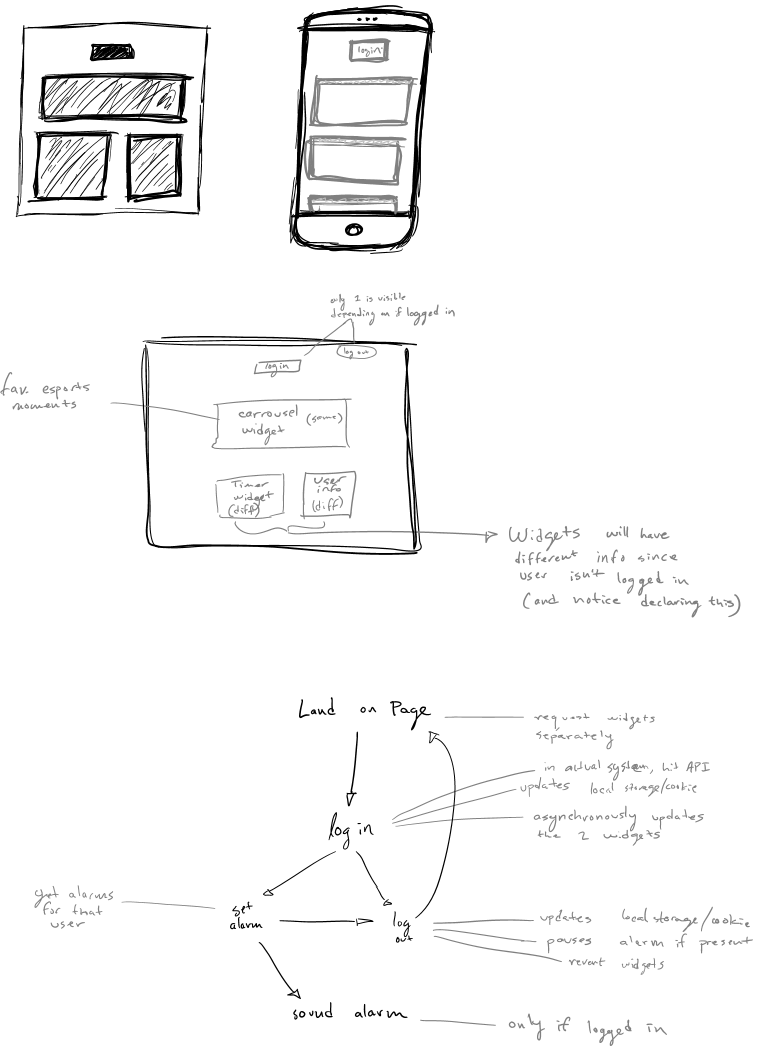 login
only 1 is visible
depending on if logged in
log out
login
fav. esports
moments
carrousel (same)
widget
Timer
widget
(diff)
User
info
(diff)
Widgets will have
different info since
user isn't logged in
(and notice declaring this)
Land on Page
request widgets
separately
in actual system, hit API
updates local storage/cookie
log in
asynchronously updates
the 2 widgets
get alarms
for that
user
set
alarm
log
out
updates local storage/cookie
pauses alarm if present
revert widgets
sound alarm
only if logged in